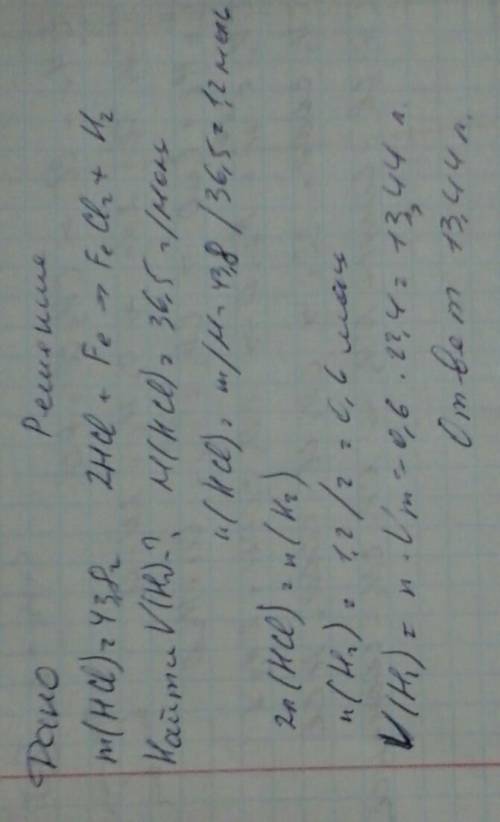 Дано Решение
m(HCl)=43,8г 2HCl + Fe → FeCl2 + H2
Найти V(H2)-? M(HCl)=36,5 г/моль
n(HCl)= m/M= 43,8/36,5=1,2 моль
2n(HCl)=n(H2)
n(H2)=1,2/2=0,6 моль
V(H2)=n·Vm=0,6·22,4=13,44 л.
Ответ 13,44 л.